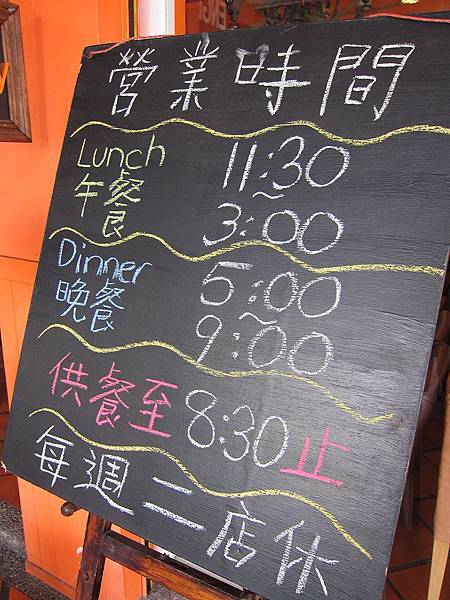 營業時間
Lunch 11:30
午餐 ~
3:00
Dinner 5:00
晚餐 ~
9:00
供餐至8:30止
每週二店休